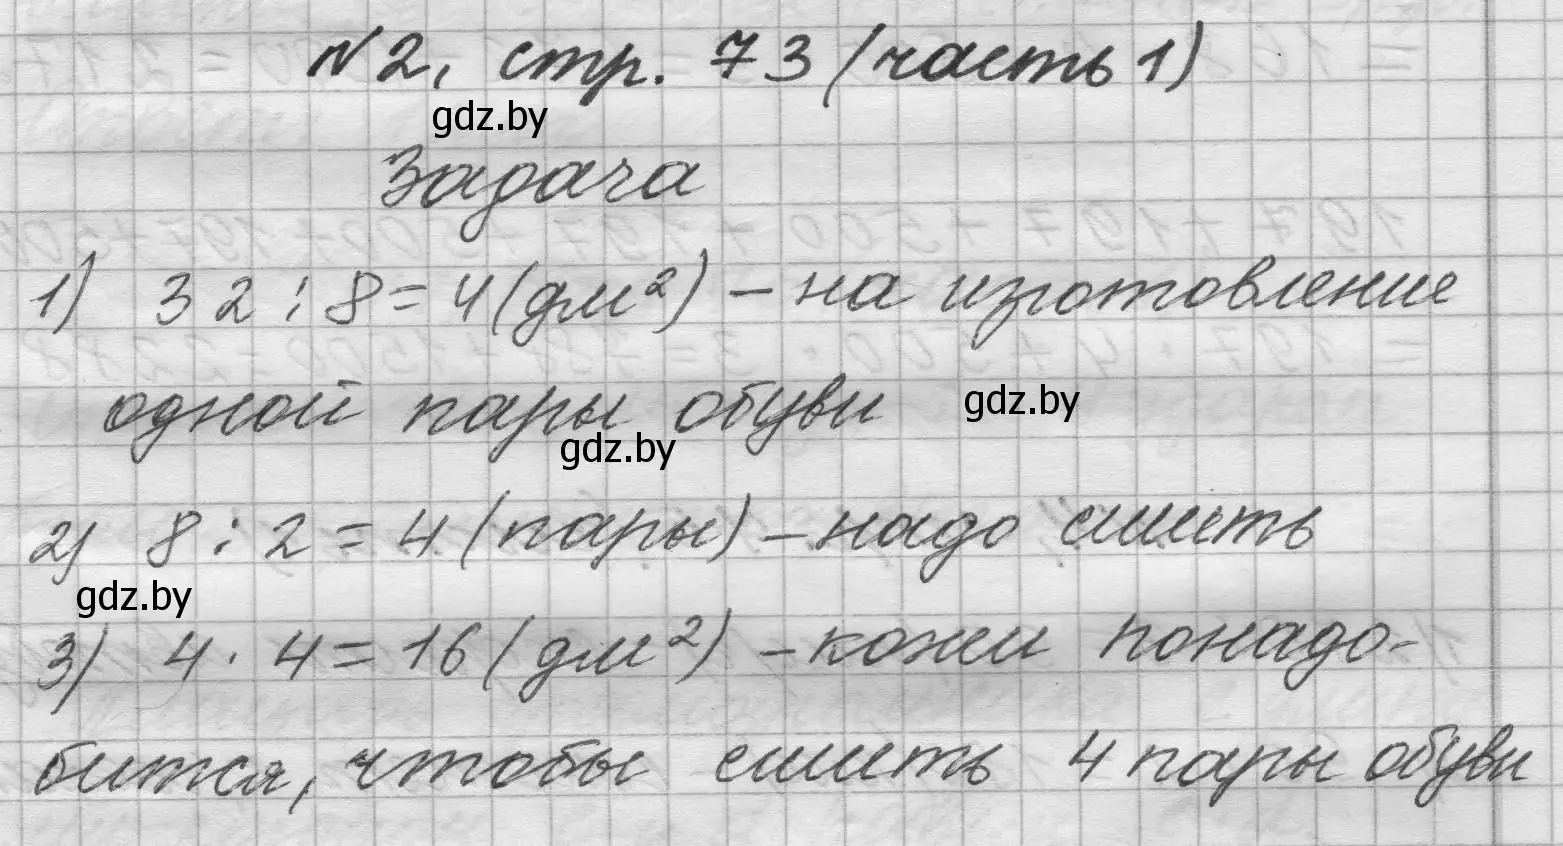 №2, стр. 73 (часть 1)
gdz.by
Задача
1) 32 : 8 = 4 (дм²) – на изготовление
одной пары обуви
gdz.by
gdz.by
2) 8 : 2 = 4 (пары) – надо сшить
gdz.by
3) 4 · 4 = 16 (дм²) – кожи понадо-
бится, чтобы сшить 4 пары обуви